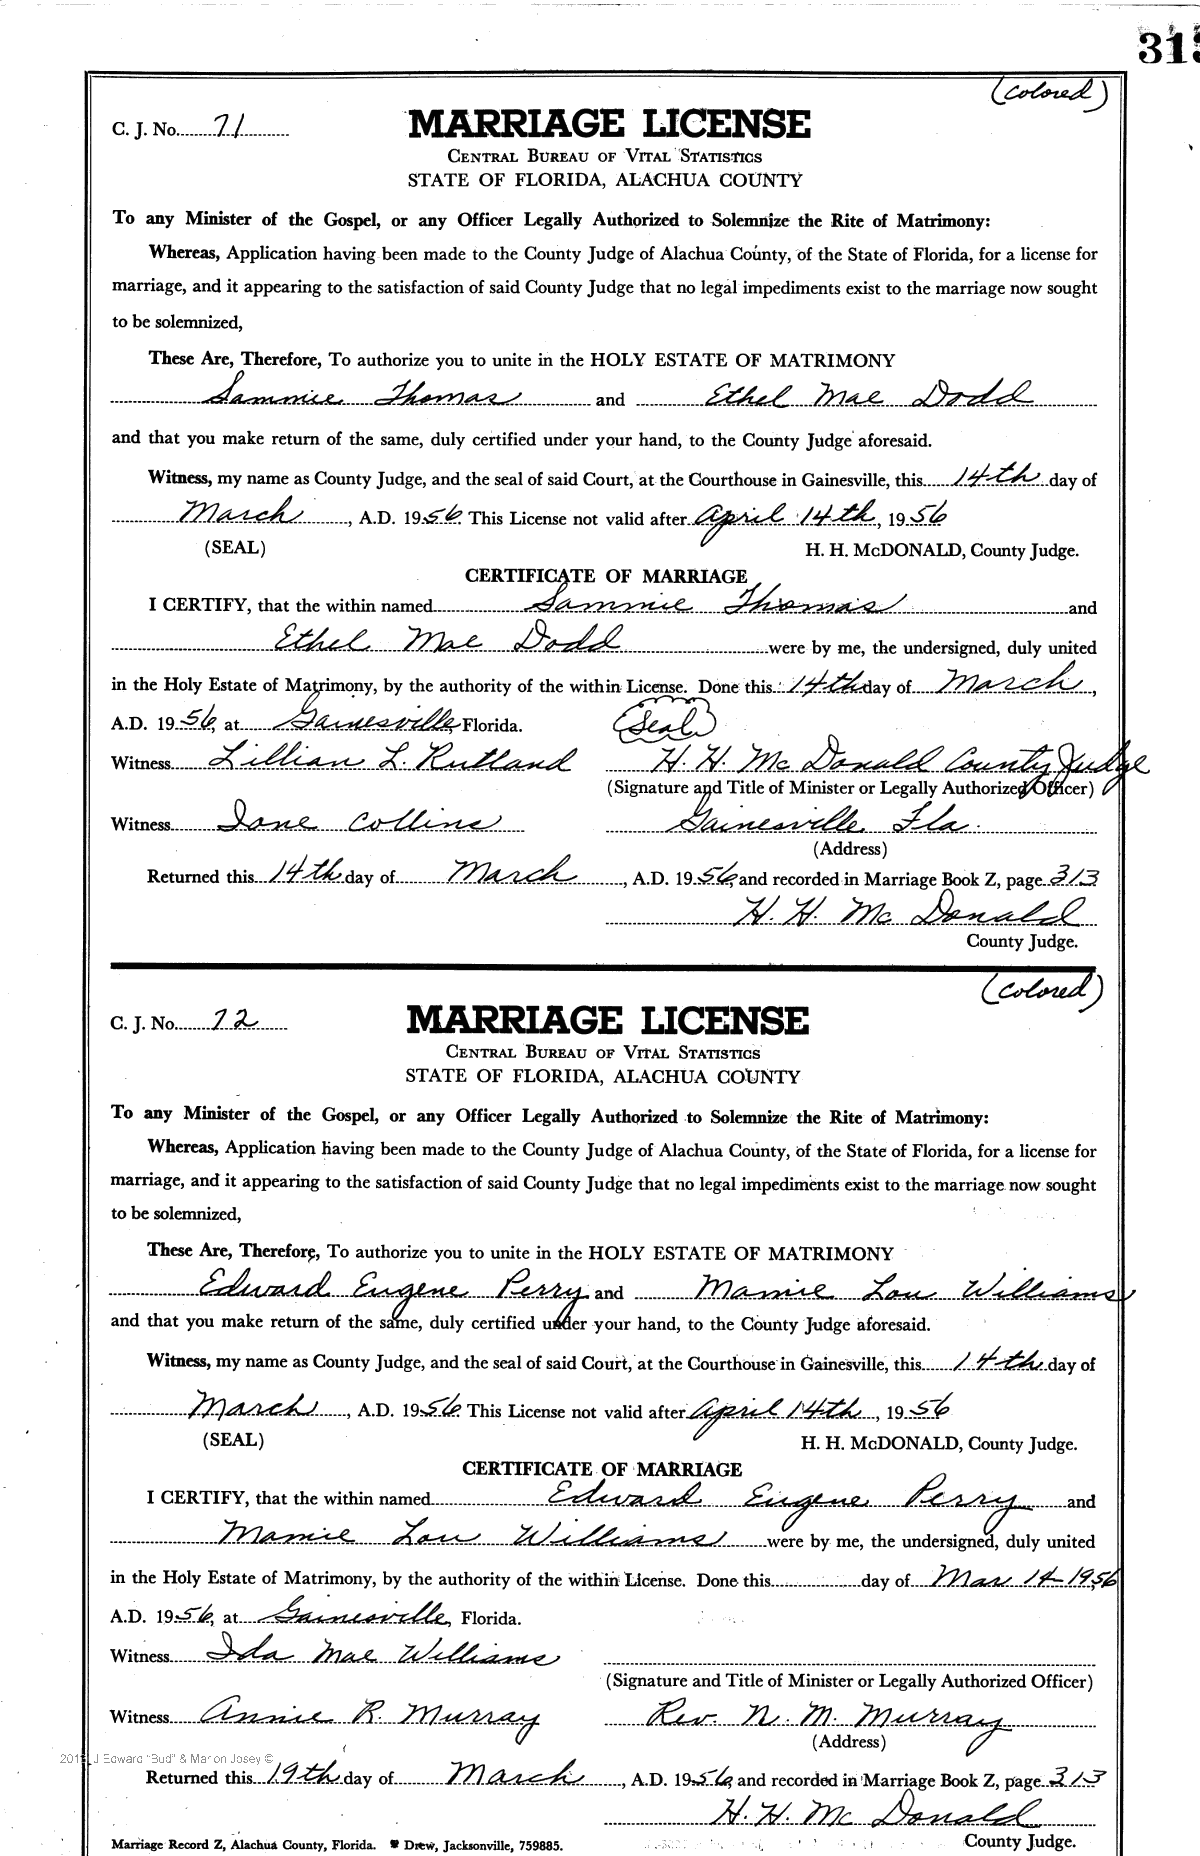 313
(colored)
C. J. No. 71
MARRIAGE LICENSE
CENTRAL BUREAU OF VITAL STATISTICS
STATE OF FLORIDA, ALACHUA COUNTY
To any Minister of the Gospel, or any Officer Legally Authorized to Solemnize the Rite of Matrimony:
Whereas, Application having been made to the County Judge of Alachua County, of the State of Florida, for a license for
marriage, and it appearing to the satisfaction of said County Judge that no legal impediments exist to the marriage now sought
to be solemnized,
These Are, Therefore, To authorize you to unite in the HOLY ESTATE OF MATRIMONY
Sammie Thomas and Ethel Mae Dodd
and that you make return of the same, duly certified under your hand, to the County Judge aforesaid.
Witness, my name as County Judge, and the seal of said Court, at the Courthouse in Gainesville, this 14th day of
March, A.D. 1956. This License not valid after April 14th, 1956
(SEAL) H. H. McDONALD, County Judge.
CERTIFICATE OF MARRIAGE
I CERTIFY, that the within named Sammie Thomas and
Ethel Mae Dodd were by me, the undersigned, duly united
in the Holy Estate of Matrimony, by the authority of the within License. Done this 14th day of March,
A.D. 1956, at Gainesville, Florida. (Seal)
Witness Lillian L. Rutland H. H. McDonald County Judge
(Signature and Title of Minister or Legally Authorized Officer)
Witness Ione Collins Gainesville Fla.
(Address)
Returned this 14th day of March, A.D. 1956, and recorded in Marriage Book Z, page 313
H. H. McDonald
County Judge.
(colored)
C. J. No. 72
MARRIAGE LICENSE
CENTRAL BUREAU OF VITAL STATISTICS
STATE OF FLORIDA, ALACHUA COUNTY
To any Minister of the Gospel, or any Officer Legally Authorized to Solemnize the Rite of Matrimony:
Whereas, Application having been made to the County Judge of Alachua County, of the State of Florida, for a license for
marriage, and it appearing to the satisfaction of said County Judge that no legal impediments exist to the marriage now sought
to be solemnized,
These Are, Therefore, To authorize you to unite in the HOLY ESTATE OF MATRIMONY
Edward Eugene Perry and Mamie Lou Williams
and that you make return of the same, duly certified under your hand, to the County Judge aforesaid.
Witness, my name as County Judge, and the seal of said Court, at the Courthouse in Gainesville, this 14th day of
March, A.D. 1956. This License not valid after April 14th, 1956
(SEAL) H. H. McDONALD, County Judge.
CERTIFICATE OF MARRIAGE
I CERTIFY, that the within named Edward Eugene Perry and
Mamie Lou Williams were by me, the undersigned, duly united
in the Holy Estate of Matrimony, by the authority of the within License. Done this day of Mar 14-1956
A.D. 1956, at Gainesville, Florida.
Witness Ida Mae Williams
(Signature and Title of Minister or Legally Authorized Officer)
Witness Annie R. Murray Rev. N. M. Murray
(Address)
J Edward "Bud" & Marion Josey ©
Returned this 19th day of March, A.D. 1956, and recorded in Marriage Book Z, page 313
H. H. McDonald
County Judge.
Marriage Record Z, Alachua County, Florida. Drew, Jacksonville, 759885.